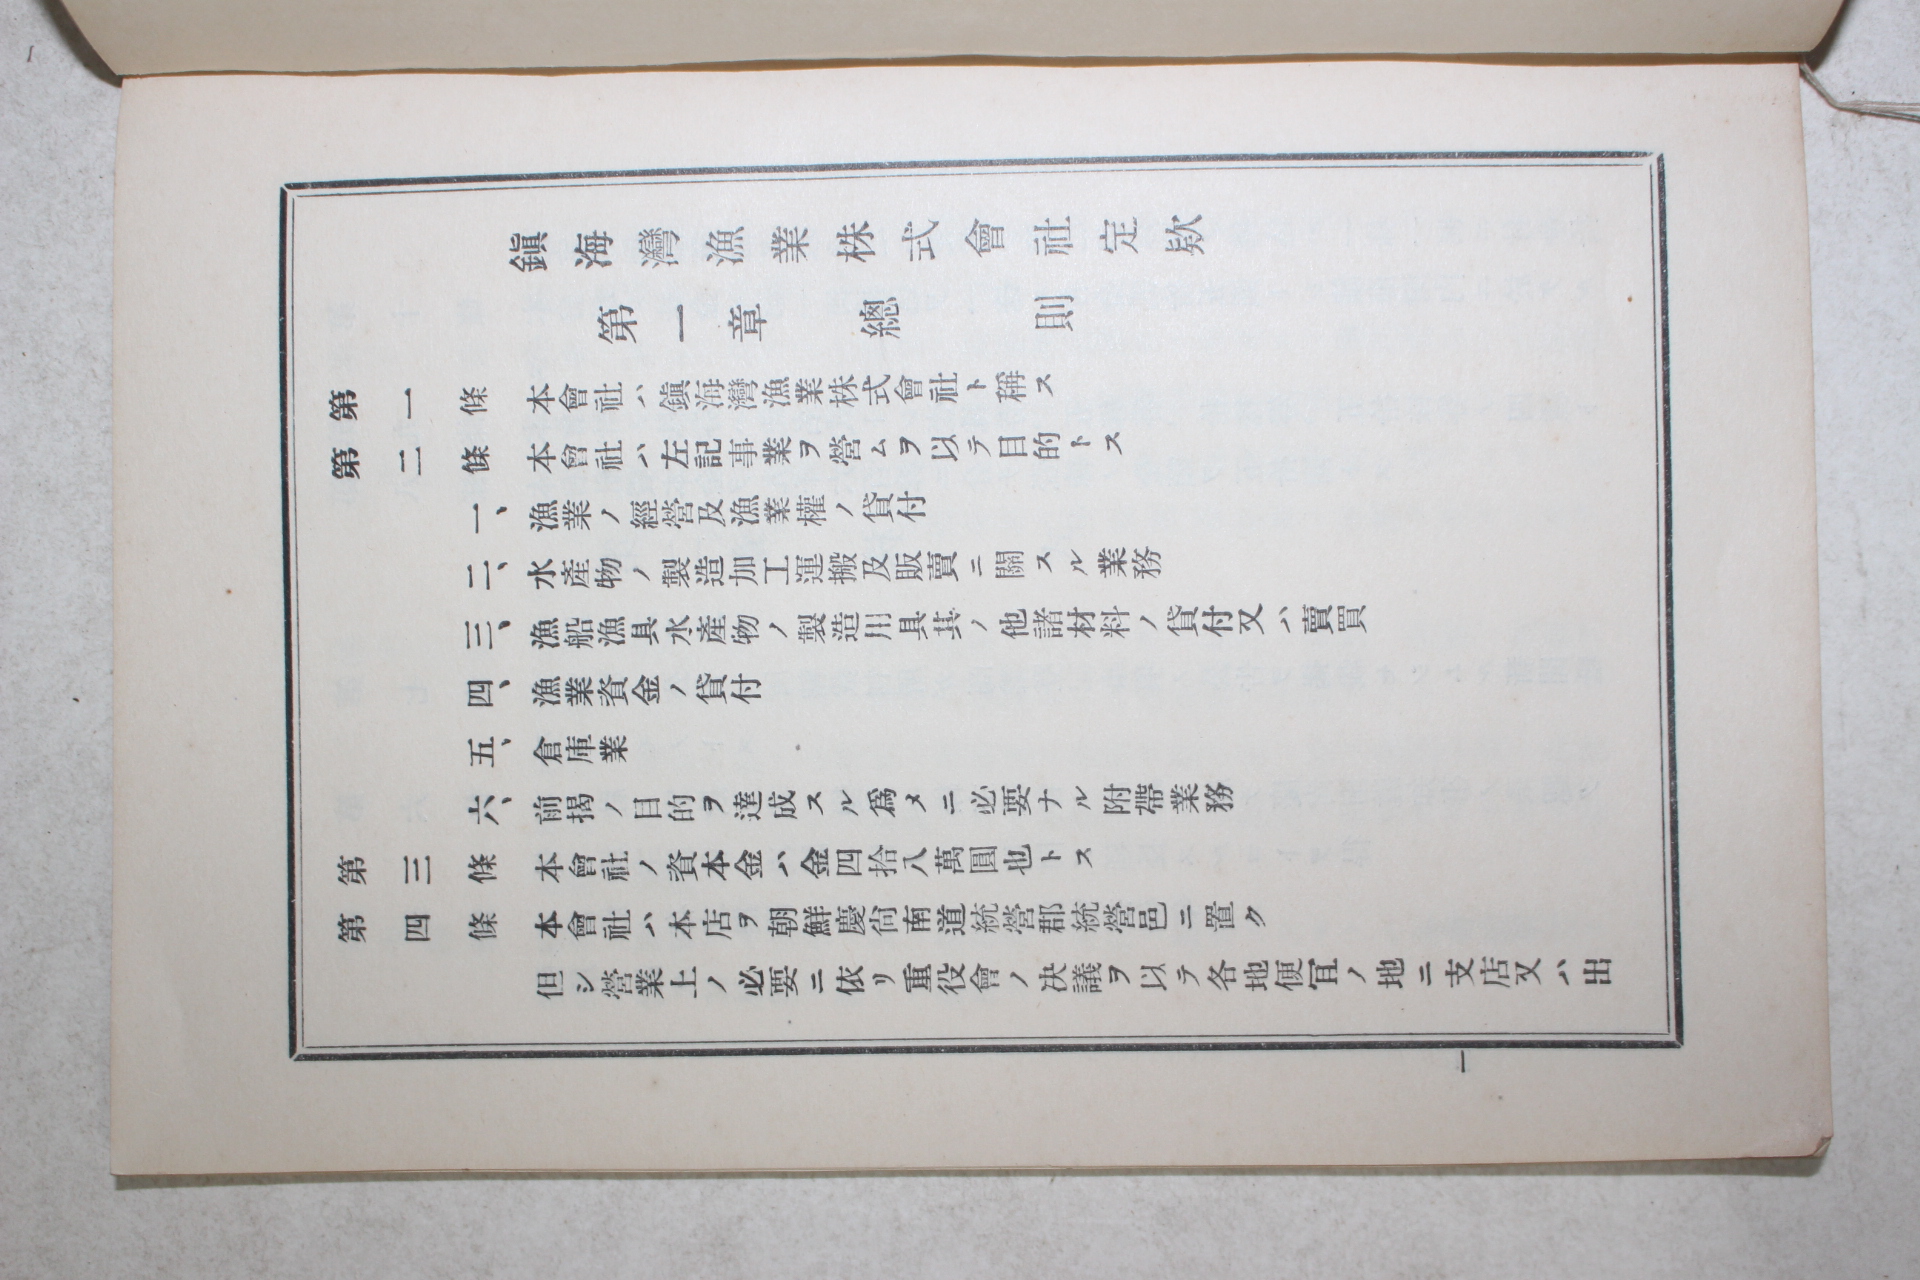 鎭海灣漁業株式會社定欵
第一章　總　則
第一條　本會社ハ鎭海灣漁業株式會社ト稱ス
第二條　本會社ハ左記事業ヲ營ムヲ以テ目的トス
一、漁業ノ經營及漁業權ノ貸付
二、水產物ノ製造加工運搬及販賣ニ關スル業務
三、漁船漁具水產物ノ製造用具其ノ他諸材料ノ貸付又ハ賣買
四、漁業資金ノ貸付
五、倉庫業
六、前揭ノ目的ヲ達成スル爲メニ必要ナル附帶業務
第三條　本會社ノ資本金ハ金四拾八萬圓也トス
第四條　本會社ハ本店ヲ朝鮮慶尙南道統營郡統營邑ニ置ク
但シ營業上ノ必要ニ依リ重役會ノ決議ヲ以テ各地便冝ノ地ニ支店又ハ出
一